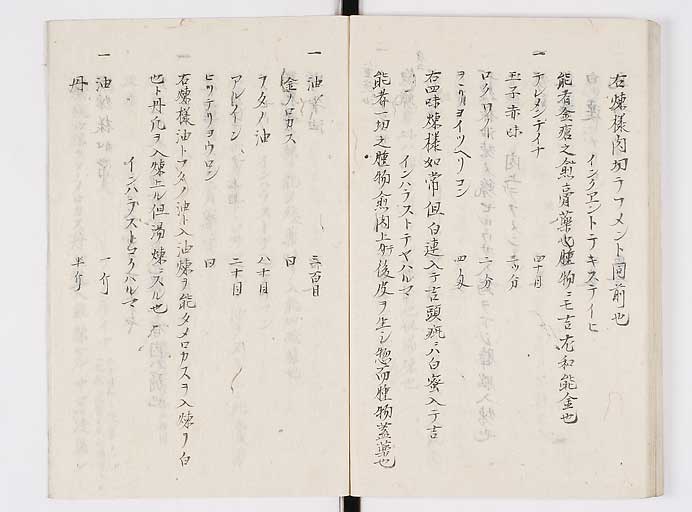 右煉様内切ラフメント同前也
インクエントテキステイヒ
能者金瘡之愈膏薬也腫物ニモ吉尤和能金也
一 テレメンテイナ 四十目
玉子赤味 三ツ分
ロクロワ 二分
ヲヽリヨイツヘリコン 四匁
右四味煉様如常但白連入テ吉頭瘡ニハ白蜜入テ吉
インハラストテヤハルマ
能者一切之腫物愈肉上ケテ後皮ヲ生シ惣而腫物蓋薬也
一 油 三百目
金ノロカス 同
ラタノ油 八十目
アルメイシ 二十目
ヒリテリヨウロン 同
右煉様油トラタノ油ト入油煉ヲ能タメロカスヲ入煉リ白
也ト丹凡ヲ入煉上ル但湯煉ニスル也
インハラストマクハルマ
一 油 一斤
丹 半斤